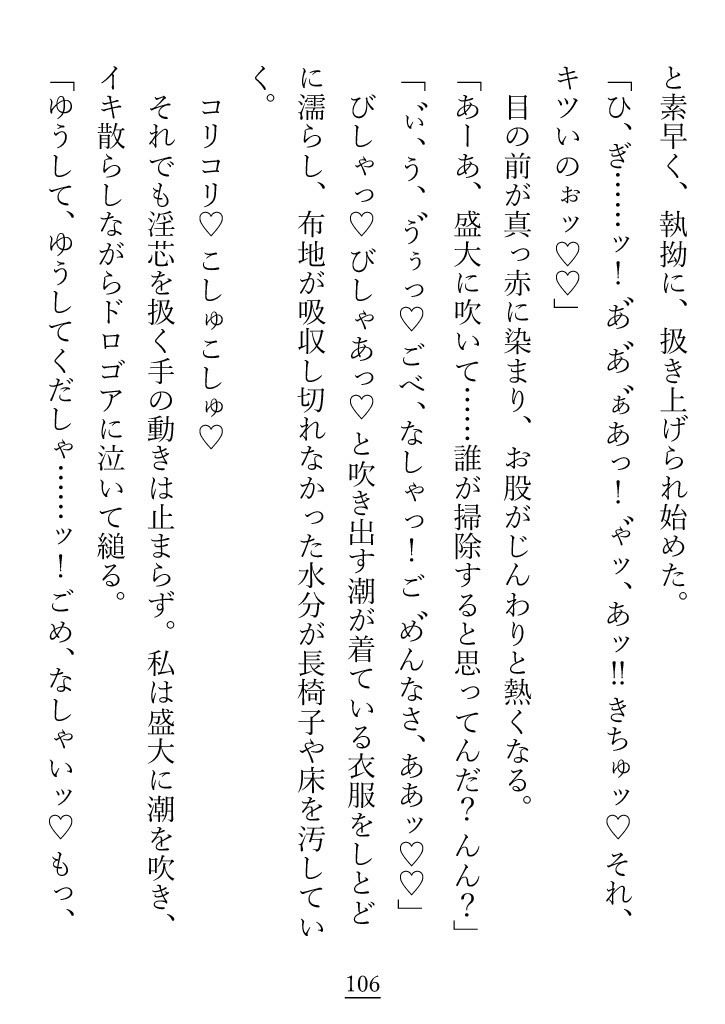 と素早く、執拗に、扱き上げられ始めた。
「ひ、ぎ……ッ！あ゛、あ゛、ぁ゛あっ！゛ゃッ、あッ‼きちゅッ♡それ、
キツいのぉッ♡♡」
目の前が真っ赤に染まり、お股がじんわりと熱くなる。
「あーあ、盛大に吹いて……誰が掃除すると思ってんだ？んん？」
「ぃ゛、う、ゔぅっ♡ごべ、なしゃっ！ご、め゛んなさ、ああッ♡♡」
びしゃっ♡びしゃあっ♡と吹き出す潮が着ている衣服をしとど
に濡らし、布地が吸収し切れなかった水分が長椅子や床を汚してい
く。
コリコリ♡こしゅこしゅ♡
それでも淫芯を扱く手の動きは止まらず。私は盛大に潮を吹き、
イキ散らしながらドロゴアに泣いて縋る。
「ゆうして、ゆうしてくだしゃ……ッ！ごめ、なしゃいッ♡もっ、
106